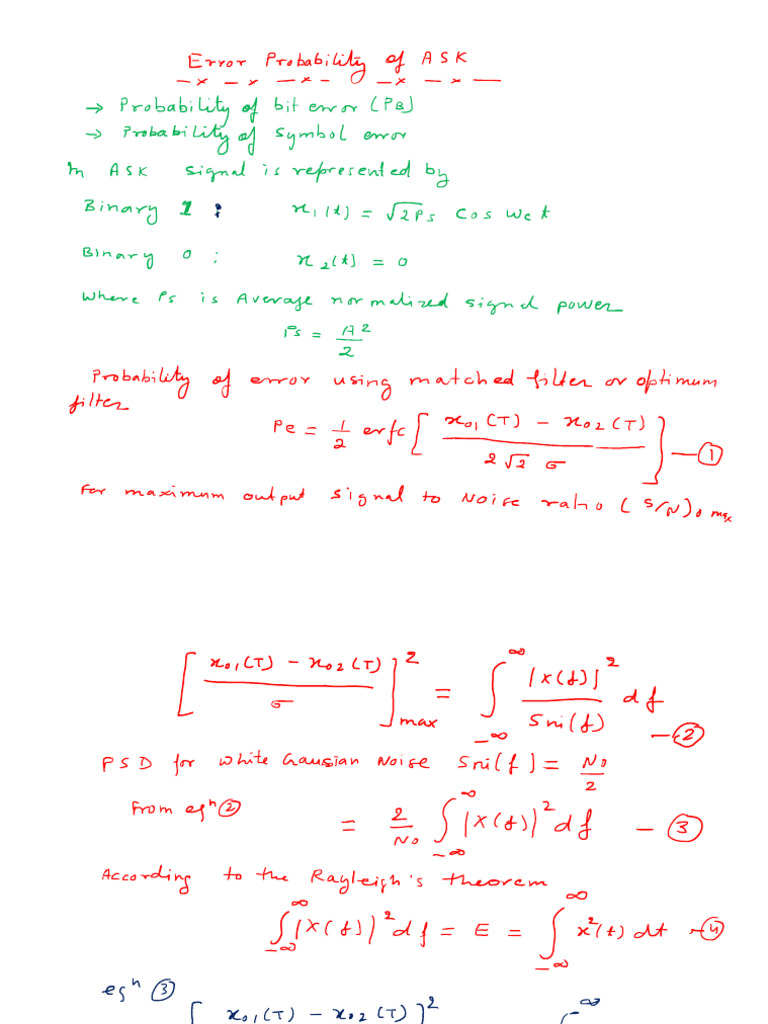 Error Probability of ASK
→ Probability of bit error (PB)
→ Probability of Symbol error
In ASK signal is represented by
Binary 1 : x1(t) = √2Ps Cos Wct
Binary 0 ; x2(t) = 0
where Ps is Average normalized signal power
Ps = A²/2
Probability of error using matched filter or optimum
filter
Pe = 1/2 erfc [ x01(T) - x02(T) / 2√2 σ ] — ①
For maximum output signal to Noise ratio (S/N)o max
[ x01(T) - x02(T) / σ ]² max = ∫_-∞^∞ |X(f)|² / Sni(f) df — ②
PSD for white Gaussian Noise Sni(f) = No/2
From eqn ② = 2/No ∫_-∞^∞ |X(f)|² df — ③
According to the Rayleigh's theorem
∫_-∞^∞ |X(f)|² df = E = ∫_-∞^∞ x²(t) dt — ④
eqn ③
[ x01(T) - x02(T) ]² ∞